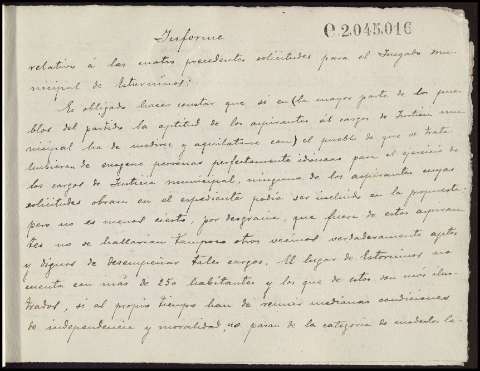 Informe
C.2.045.016
relativo á las cuatro precedentes solicitudes para el Juzgado mu-
nicipal de
Es obligado hacer constar que si en (la mayor parte de los pue-
blos del partido la aptitud de los aspirantes al cargo de Justicia mu-
nicipal ha de medirse y aquilatarse con) el pueblo de que se trata
hubieran de exigirse personas perfectamente idóneas para el ejercicio de
los cargos de Justicia municipal, ninguno de los aspirantes cuyas
solicitudes obran en el expediente podía ser incluido en la propuesta;
pero no es menos cierto, por desgracia, que fuera de estos aspiran-
tes no se hallarían tampoco otros vecinos verdaderamente aptos
y dignos de desempeñar tales cargos. El lugar de no
cuenta con más de 250 habitantes y los que de estos son más ilus-
trados, si al propio tiempo han de reunir medianas condiciones
de independencia y moralidad, no pasan de la categoría de modestos la-